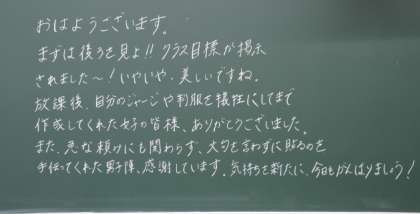 おはようございます。
まずは後ろを見よ!! クラス目標が掲示
されました～!いやいや、美しいですね。
放課後、自分のジャージや制服を犠牲にしてまで
作成してくれた女子の皆様、ありがとうございました。
また、急な頼みにも関わらず、文句を言わずに貼るのを
手伝ってくれた男子陣、感謝しています。気持ちを新たに、今日もがんばりましょう!